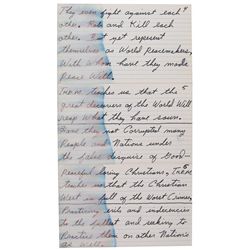 They even fight against each 4
other. Rob and Kill each
other. But yet represent
themselves as World Peacemakers
With whom have they made
Peace With.
teaches us that the 5
great deceivers of the World Will
reap What they have sown.
Have they not Corrupted many
People and Nations under
the false disguise of Good
Peaceful loving Christians,
teaches us that the Christian
West is full of the Worst Crimes
Practicing evils and indecencies
to the fullest and seeking to
Practice them on other Nations
as well.